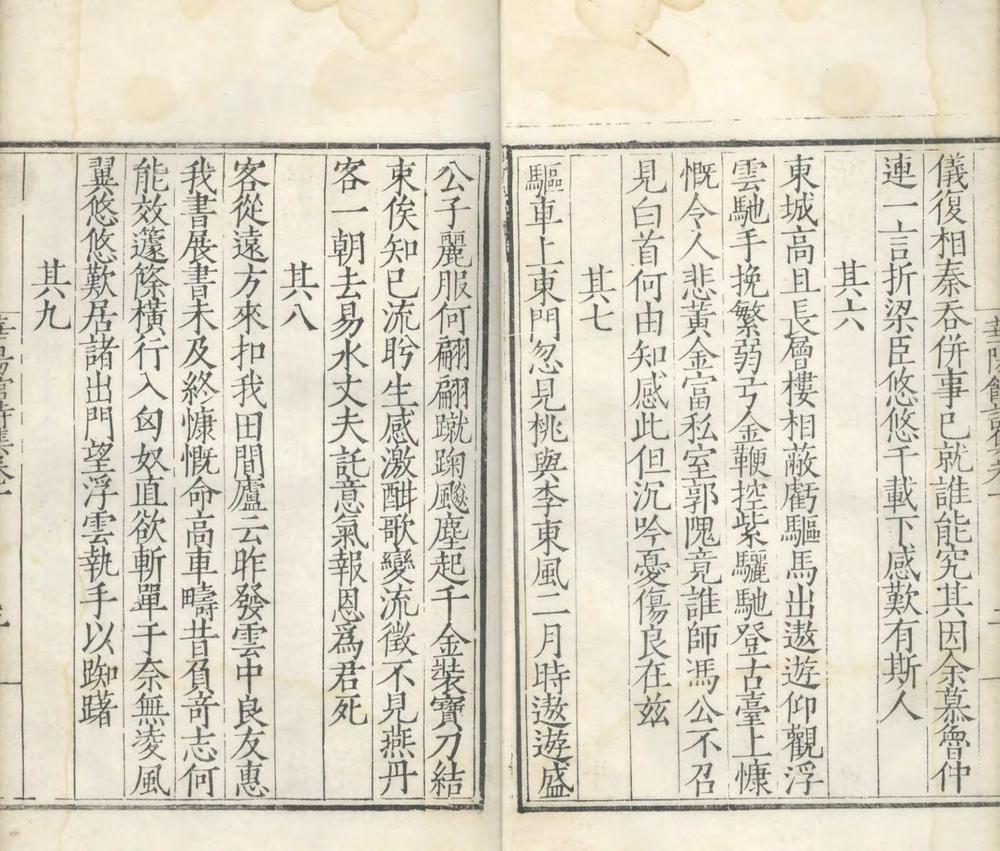 儀復相秦吞併事已就誰能究其因余慕魯仲
連一言折梁臣悠悠千載下感歎有斯人
其六
東城高且長層樓相蔽虧驅馬出遨遊仰觀浮
雲馳手挽繁弱弓金鞭控紫驪馳登古臺上慷
慨令人悲黃金富私室郭隗竟誰師馮公不召
見白首何由知感此但沉吟憂傷良在兹
其七
驅車上東門忽見桃與李東風二月時遨遊盛
公子麗服何翩翩蹴踘飚塵起千金裝寶刀結
束俟知已流盻生感激酣歌變流徵不見燕丹
客一朝去易水丈夫託意氣報恩爲君死
其八
客從遠方來扣我田間廬云昨發雲中良友惠
我書展書未及終慷慨命高車疇昔負竒志何
能效籧篨橫行入匈奴直欲斬單于奈無凌風
翼悠悠歎居諸出門望浮雲執手以踟躇
其九